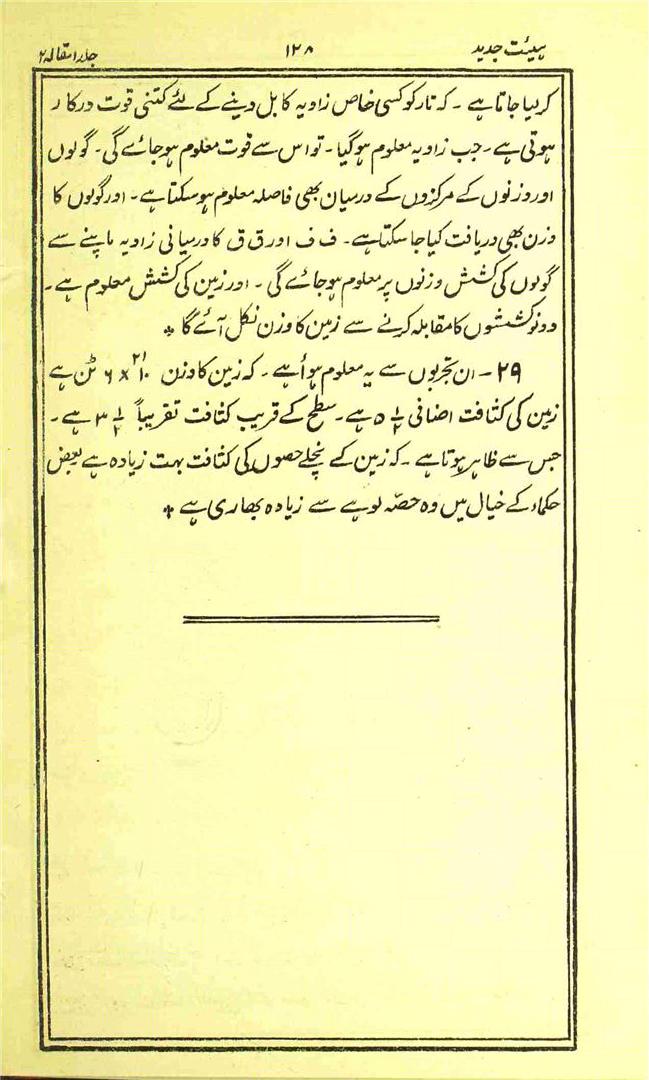 ہیئت جدید ۱۲۸ جلد ۱ مقالہ ۲
کر لیا جاتا ہے۔ کہ تار کو کسی خاص زاویہ کا بل دینے کے لئے کتنی قوت درکار
ہوتی ہے۔ جب زاویہ معلوم ہو گیا۔ تو اس سے قوت معلوم ہو جائے گی۔ گولوں
اور وزنوں کے مرکزوں کے درمیان بھی فاصلہ معلوم ہو سکتا ہے۔ اور گولوں کا
وزن بھی دریافت کیا جا سکتا ہے۔ ف ف اور ق ق کا درمیانی زاویہ ماپنے سے
گولوں کی کشش وزنوں پر معلوم ہو جائے گی۔ اور زمین کی کشش معلوم ہے۔
دونو کششوں کا مقابلہ کرنے سے زمین کا وزن نکل آئے گا *
۲۹۔ ان تجربوں سے یہ معلوم ہوأ ہے۔ کہ زمین کا وزن ۶ × ۱۰^۲۱ ٹن ہے
زمین کی کثافت اضافی ۵ ۱/۲ ہے۔ سطح کے قریب کثافت تقریباً ۳ ۱/۲ ہے۔
جس سے ظاہر ہوتا ہے۔ کہ زمین کے نچلے حصوں کی کثافت بہت زیادہ ہے بعض
حکماء کے خیال میں وہ حصّہ لوہے سے زیادہ بھاری ہے *